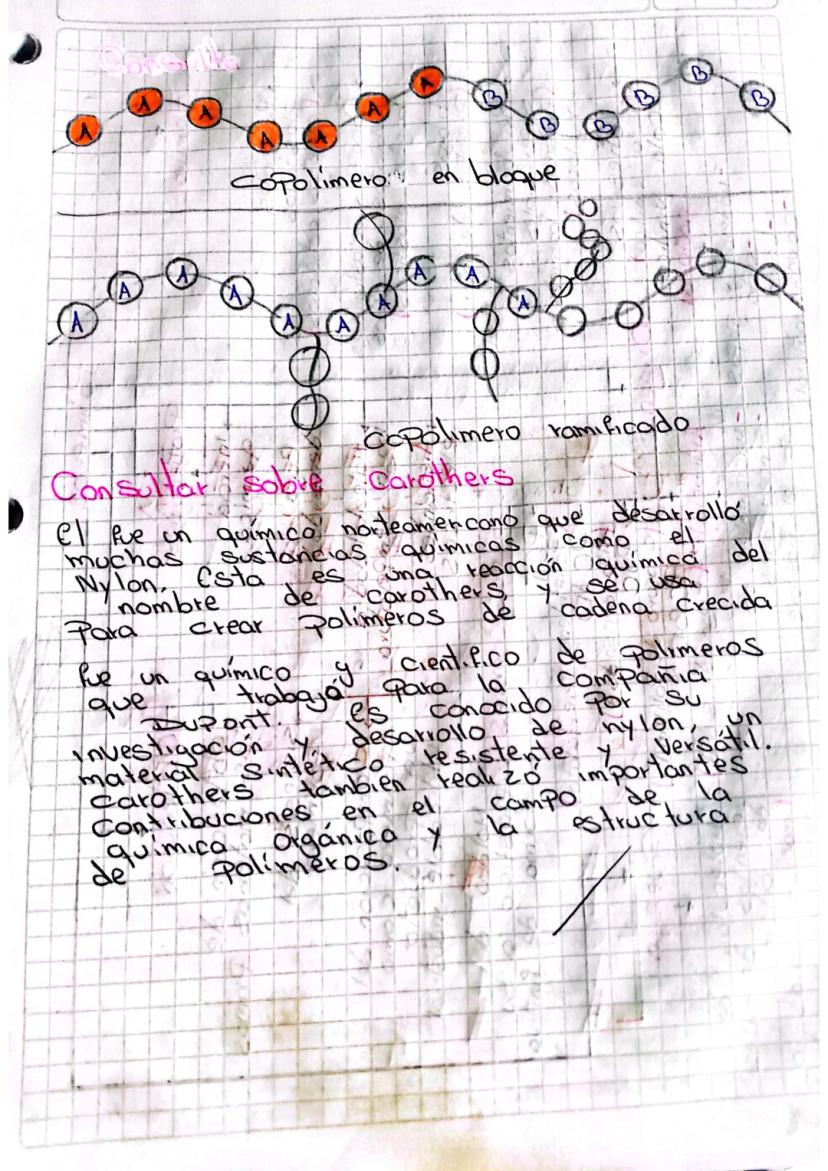 Consulta
A A A A A A A B B B B B B
Copolímero en bloque
A A A A A A A A A A
Copolímero ramificado
Consultar sobre Carothers
El fue un químico norteamericano que desarrolló
muchas sustancias químicas como el
Nylon. Esta es una reacción química del
nombre de carothers, y se usa
Para crear polímeros de cadena crecida
fue un químico y científico de polímeros
que trabajó para la compañia
DuPont. es conocido por su
investigación y desarrollo de nylon, un
material sintético resistente y versátil.
Carothers tambien realizó importantes
Contribuciones en el campo de la
química orgánica y la estructura
de polímeros.